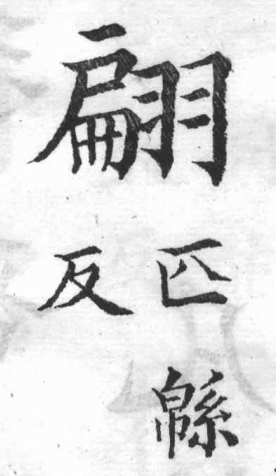 翩
匹緜
反